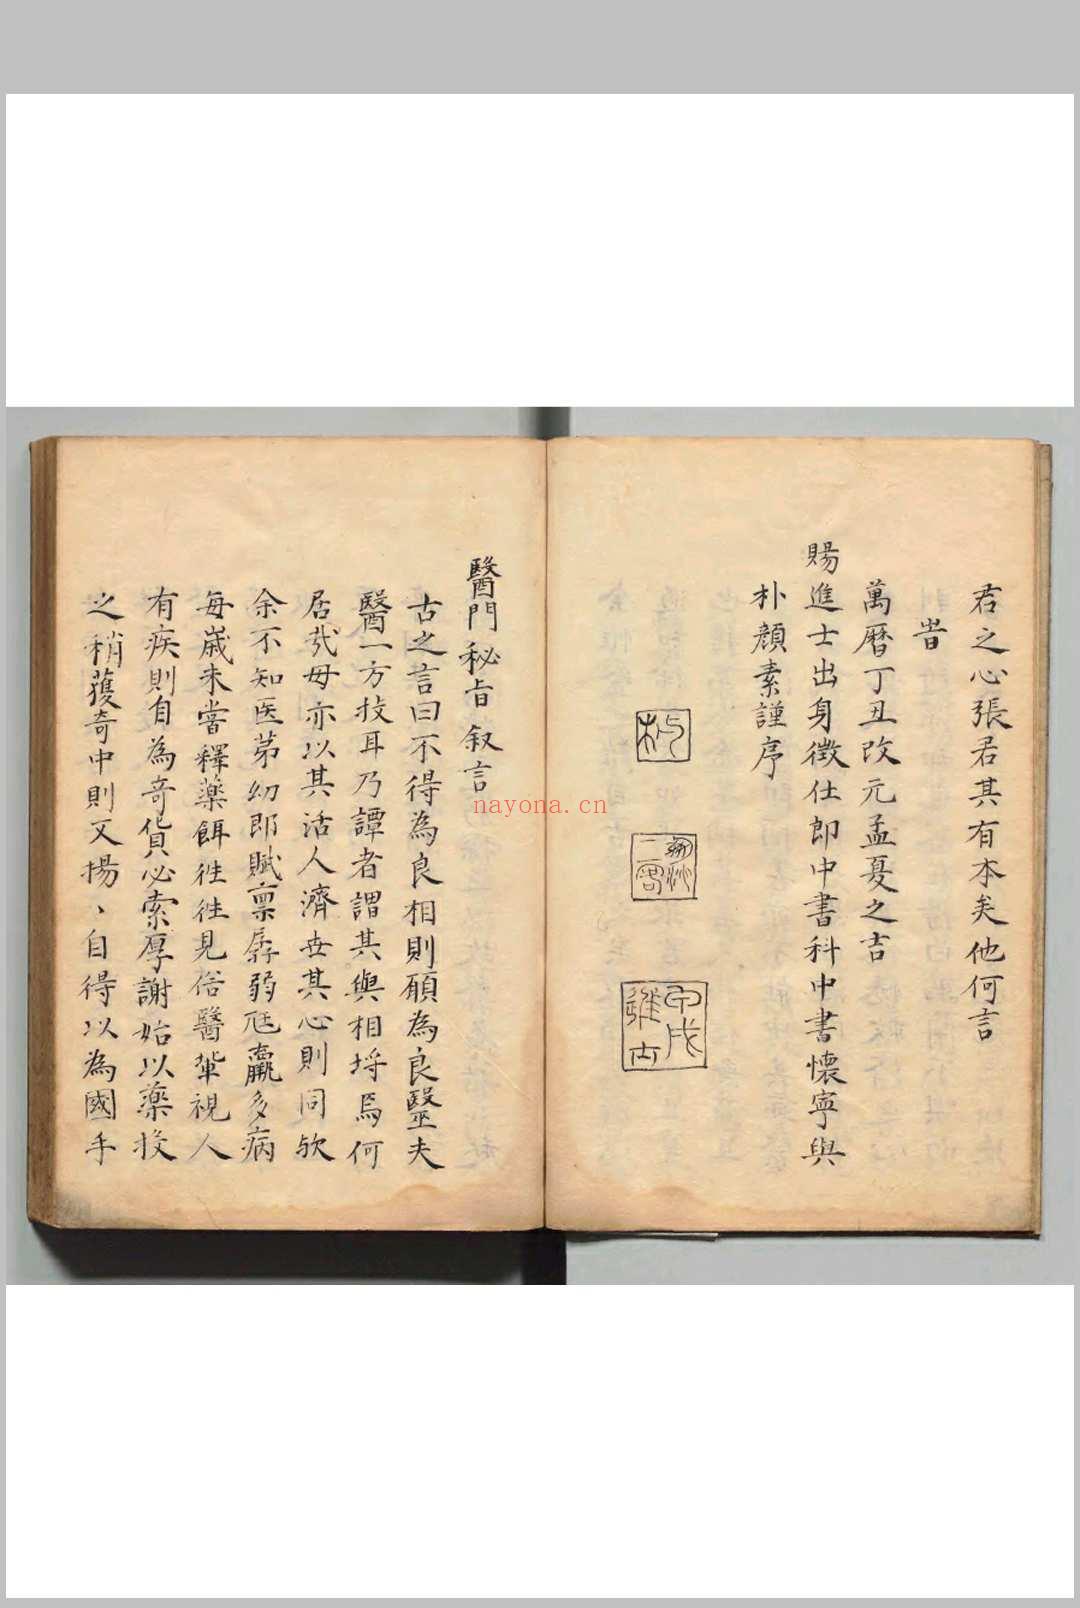 君之心張君其有本矣他何言
旹
萬曆丁丑改元孟夏之吉
賜進士出身徵仕郎中書科中書懷寧與
朴顏素謹序
甲戌進士
醫門秘旨叙言
古之言曰不得為良相則願為良毉夫
醫一方技耳乃譚者謂其與相埒焉何
居哉毋亦以其活人濟世其心則同歟
余不知医苐幼即賦稟孱弱尫羸多病
每歲未嘗釋藥餌徃徃見俗醫軰視人
有疾則自為奇貨必索厚謝始以藥投
之稍獲奇中則又揚、自得以為國手
nayona.cn